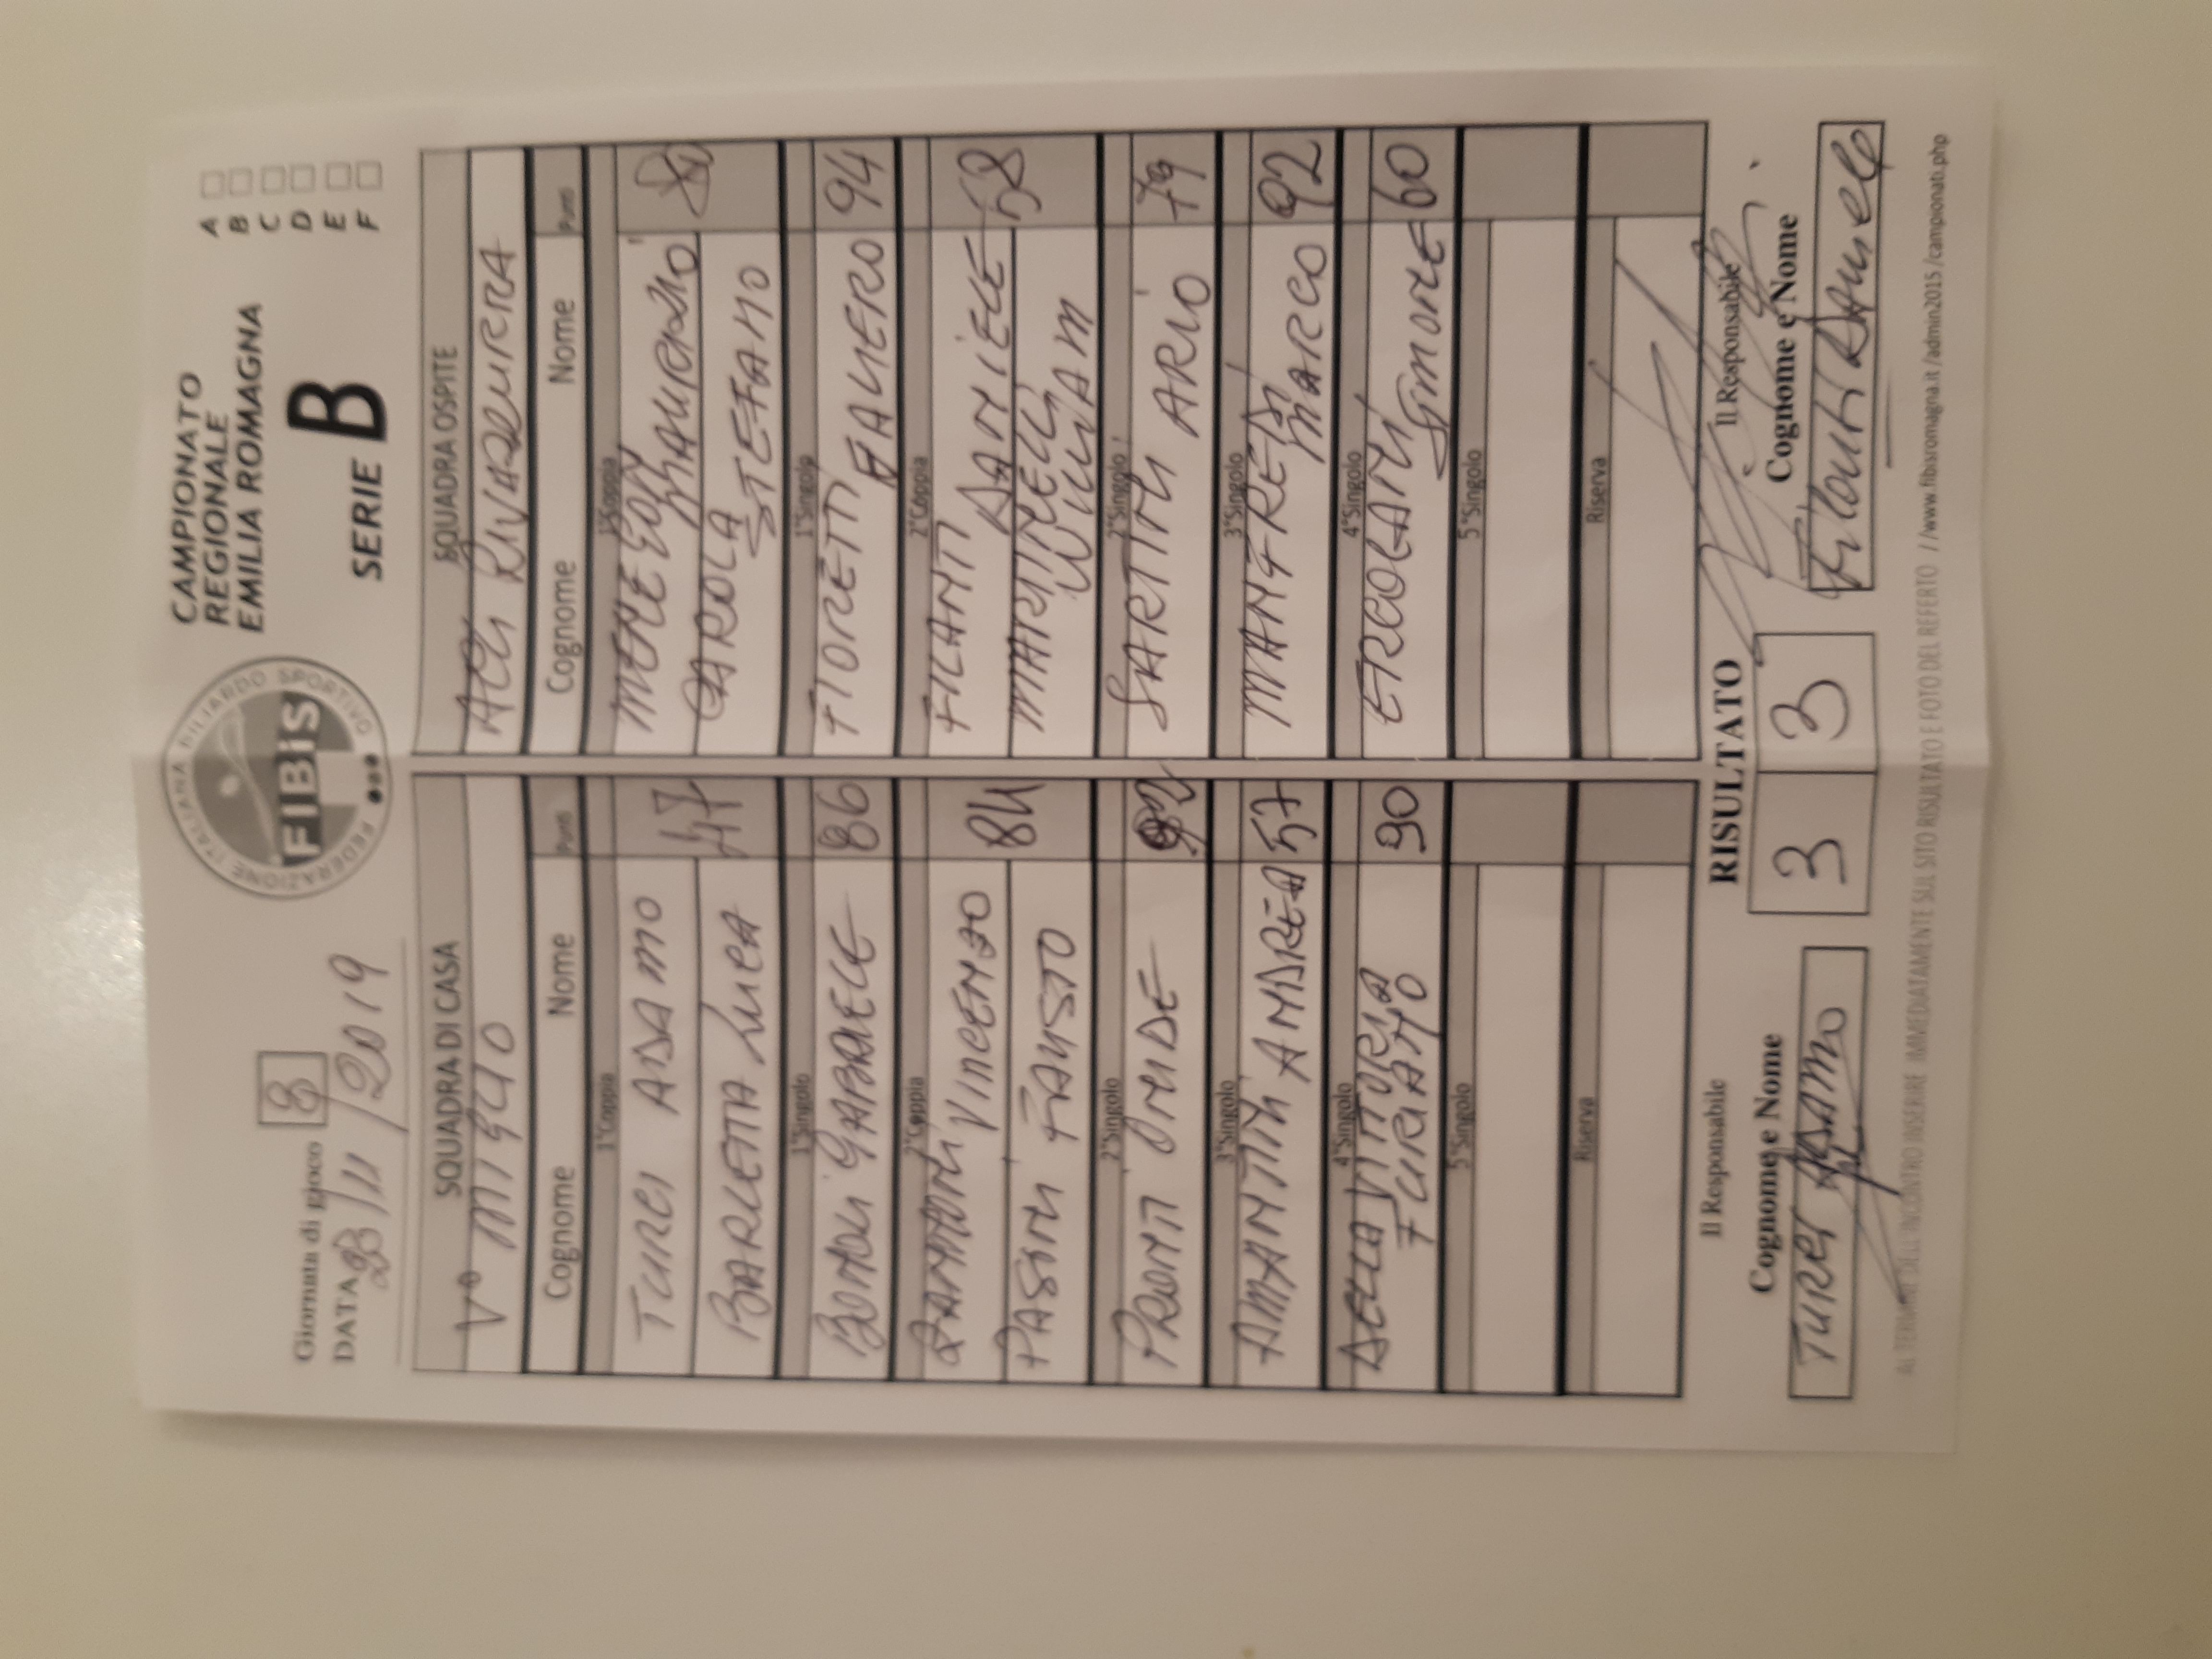 Giornata di gioco 8
DATA 23/11/2019
FEDERAZIONE ITALIANA BILIARDO SPORTIVO
FIBiS
CAMPIONATO
REGIONALE
EMILIA ROMAGNA
SERIE B
A
B
C
D
E
F
SQUADRA DI CASA
V° MIGLIO
Cognome Nome Punti
1°Coppia
TURCI ADAMO 47
BARLETTA LUCA
1°Singolo
BONOLI GABRIELE 86
2°Coppia
VINCENZO 84
PASINI FAUSTO
2°Singolo
PRONTI 92
3°Singolo
AMANTINI ANDREA 57
4°Singolo
DELLA VITTORIA 90
FURIANO
5°Singolo
Riserva
SQUADRA OSPITE
ACLI RIVADURRA
Cognome Nome Punti
1°Coppia
MENEGONI MAURIZIO 80
CAROLA STEFANO
1°Singolo
FIORETTI 94
2°Coppia
FILANTI DANIELE 58
MARTINELLI WILLIAM
2°Singolo
SARTINI ARIO 79
3°Singolo
MANFREDI MARCO 92
4°Singolo
ERCOLANI SIMONE 60
5°Singolo
Riserva
Il Responsabile
Cognome e Nome
TURCI ADAMO
RISULTATO
3 3
Il Responsabile
Cognome e Nome
Filanti Daniele
AL TERMINE DELL'INCONTRO INSERIRE IMMEDIATAMENTE SUL SITO RISULTATO E FOTO DEL REFERTO //www.fibisromagna.it/admin2015/campionati.php